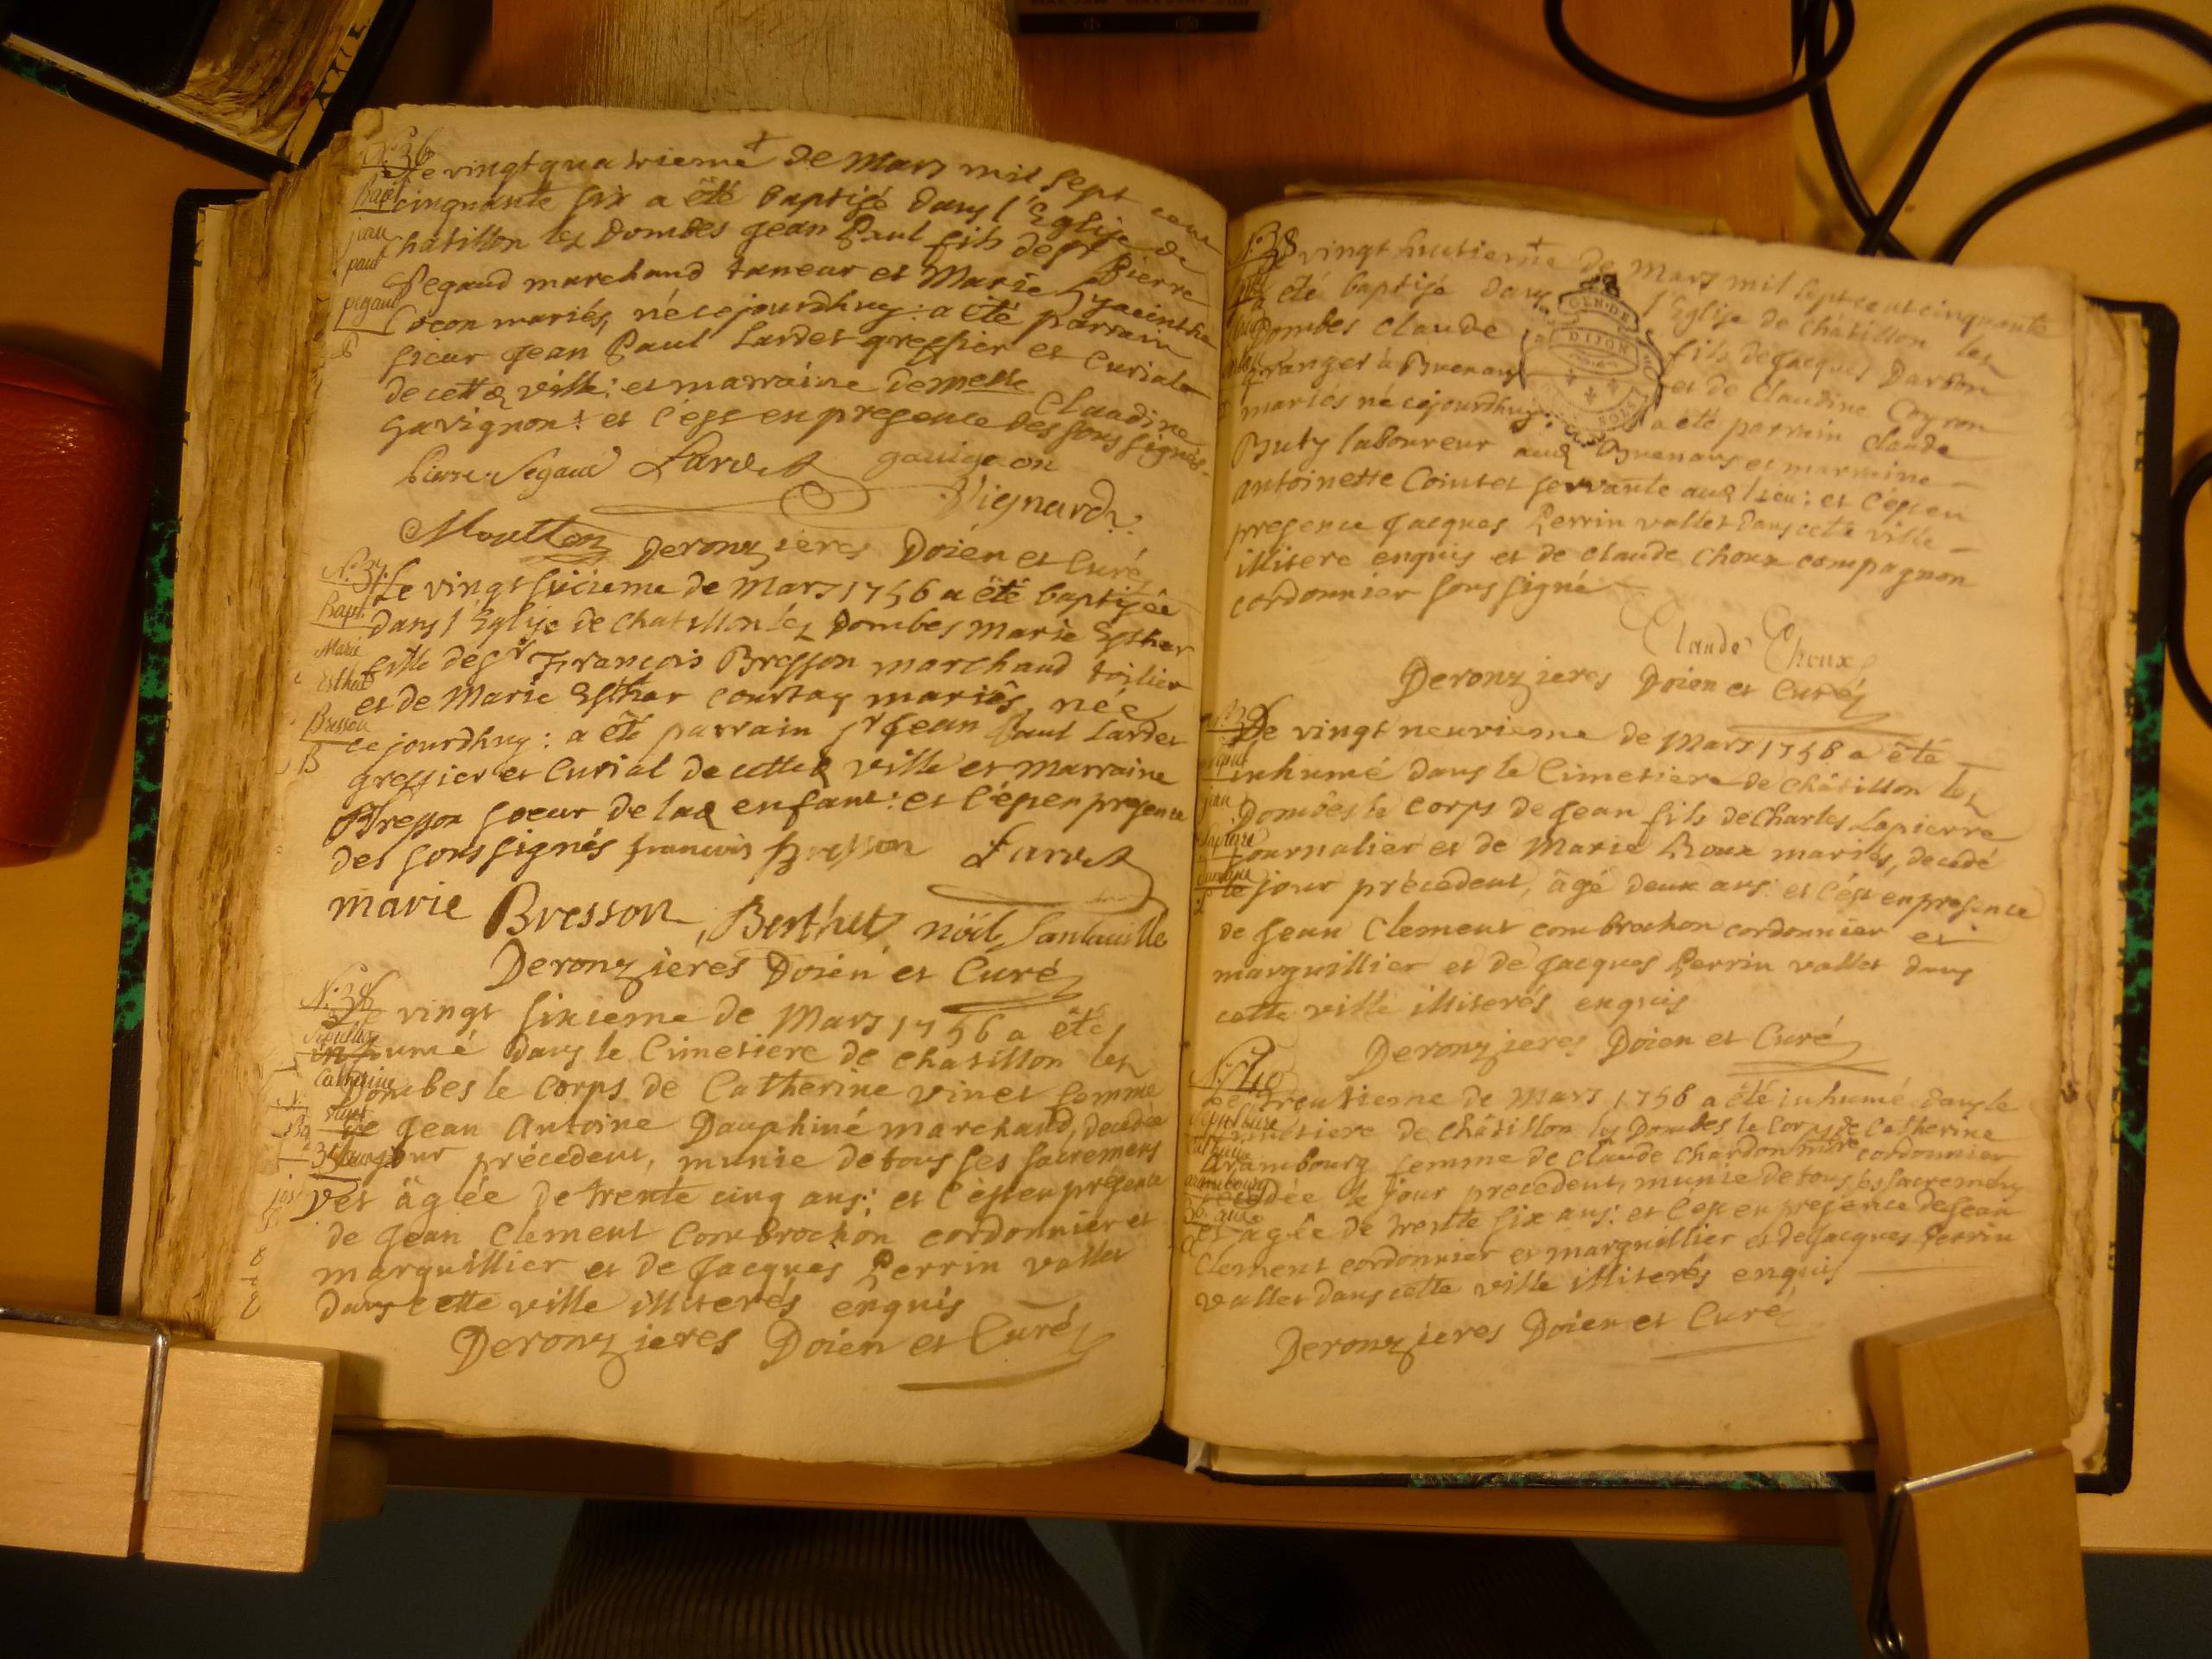 N.° 36
Le vingt quatrieme de Mars mil sept cent
Bapt. cinquante six a été baptisé dans l'Eglise de
jean Chatillon les Dombes Jean Paul fils de sr Pierre
paul Pegaud marchand taneur et Marie Hyacinthe
pegaud Cocon mariés, né ce jourdhuy: a été parrain
sieur Jean Paul Lardet greffier et Curial
de cette ville: et marraine demelle Claudine
Gavignon: et c'est en presence des sous signés
Pierre Pegaud Lardet gauignon
Vignard
Moutton Deronzieres Doien et Curé
N.° 37. Le vingt sixieme de Mars 1756 a été baptisée
Bapt. dans l'Eglise de Chatillon les Dombes Marie Esther
Marie fille de sr François Bresson marchand toilier
Esther et de Marie Esther Courtay mariés, née
Bresson ce jourdhuy: a été parrain sr Jean Paul Lardet
B greffier et Curial de cette ville et Marraine
Bresson soeur de lad enfant: et c'est en presence
des sous signés francois Bresson Lardet
marie Bresson, Berthet, nöil Santaville
Deronzieres Doien et Curé
N.° 38 Le vingt sixieme de Mars 1756 a été
Sepulture inhumé dans le Cimetiere de chatillon les
Catherine Dombes le corps de Catherine vinet femme
vinet de Jean Antoine Dauphiné marchand, decedée
35 ans le jour précedent, munie de tous ses sacremens
et âgée de trente cinq ans: et c'est en présence
de Jean Clement Combrochon cordonnier et
marguillier et de Jacques Perrin vallet
dans cette ville illiterés enquis
Deronzieres Doien et Curé
N.° 38 vingt huitieme de Mars mil sept cent cinquante
été baptisé dans l'Eglise de Châtillon les
Dombes Claude fils de Jacques Darbon
granger à Buenans et de Claudine Coyron
mariés né ce jourdhuy: a été parrain Claude
Buty laboureur aud Buenans et marraine
antoinette Cointet servante aud lieu: et c'est en
presence Jacques Perrin vallet dans cette ville
illitere enquis et de Claude Choux compagnon
cordonnier sous signé
GEN. DE
DIJON
SOLS
Claude Choux
Deronzieres Doien et Curé
Le vingt neuvieme de Mars 1756 a été
inhumé dans le Cimetiere de Châtillon les
jean Dombes le corps de Jean fils de Charles Lapierre
Lapierre journalier et de Marie Roux mariés, decedé
le jour précedent, âgé deux ans: et c'est en presence
de Jean Clement combrochon cordonnier et
marguillier et de Jacques Perrin vallet dans
cette ville illiterés enquis
Deronzieres Doien et Curé
N.° 40
Le trentieme de Mars 1756 a été inhumé dans le
Sepulture Cimetiere de Châtillon les Dombes le corps de Catherine
Arambourg femme de Claude Chardonnière cordonnier
arambourg decedée le jour precedent, munie de tous ses sacremens
36. ans et agée de trente six ans: et c'est en presence de Jean
Clement cordonnier et marguillier et de Jacques Perrin
vallet dans cette ville illiterés enquis
Deronzieres Doien et Curé